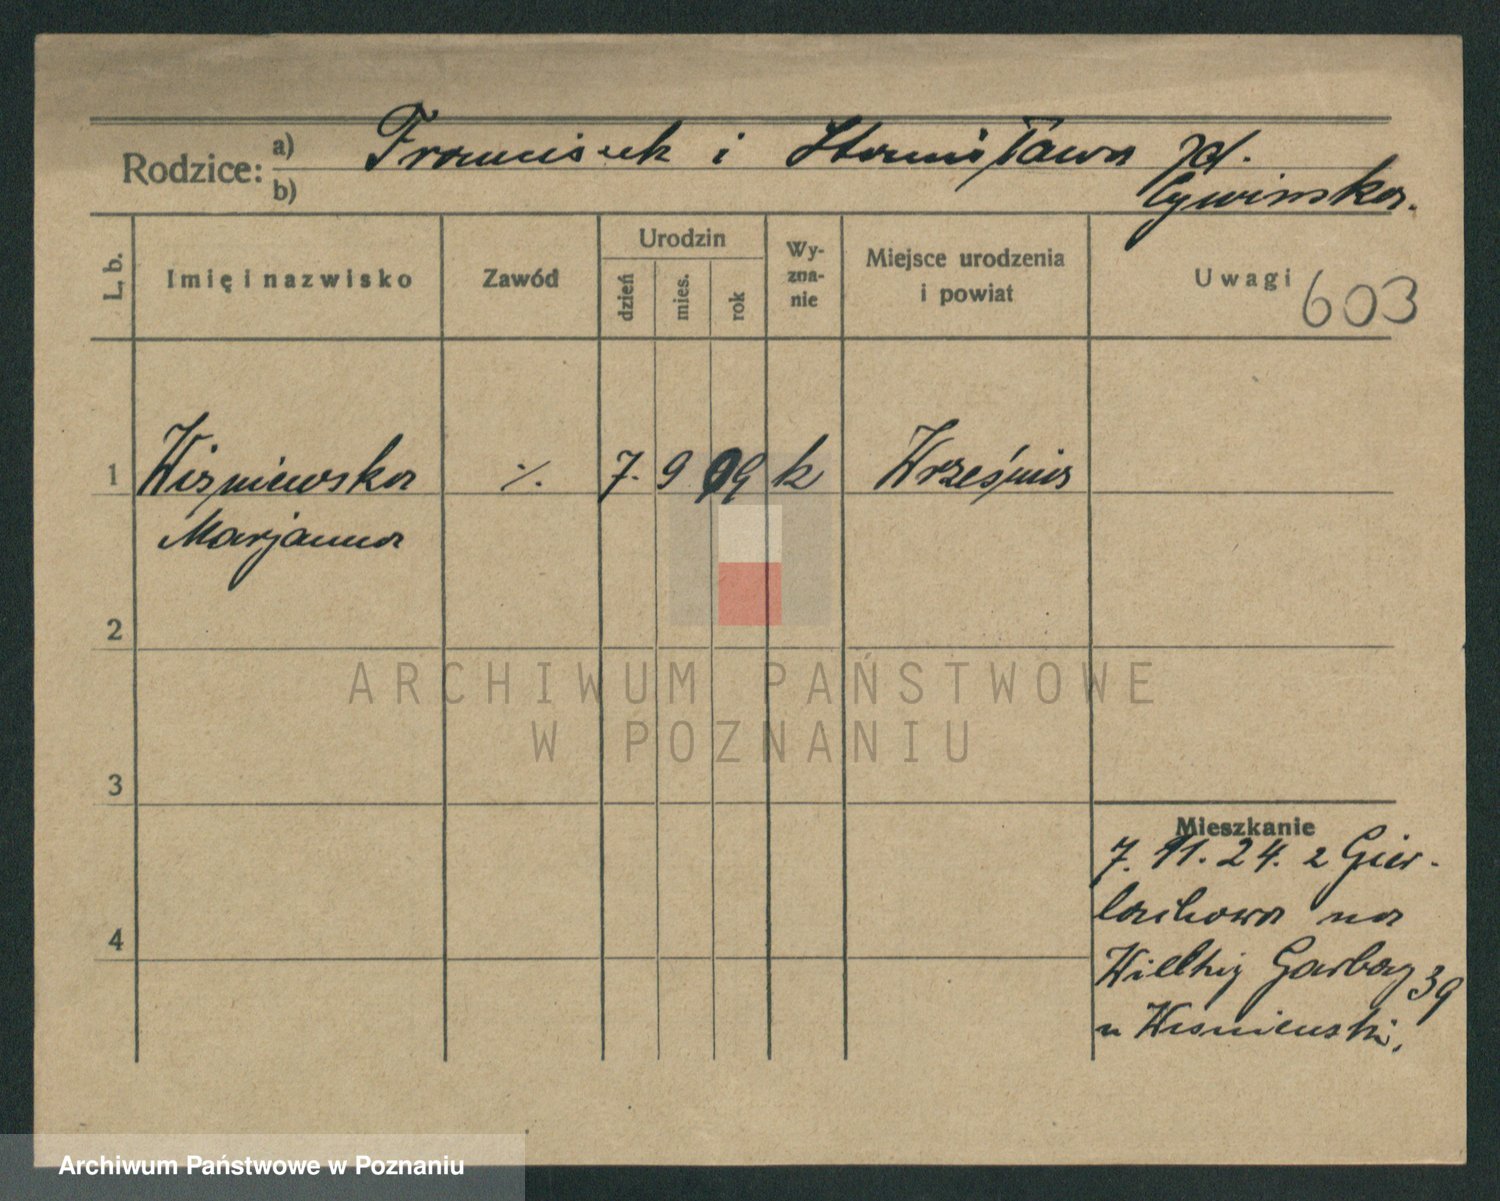 Rodzice: a) Franciszek i Stanisława zd.
b) Cywińska.
L. b.
Imię i nazwisko
Zawód
Urodzin
dzień
mies.
rok
Wy-
zna-
nie
Miejsce urodzenia
i powiat
Uwagi 603
1 Wiśniewska ·/. 7. 9 09 k Września
Marjanna
2
3
4
Mieszkanie
7. 11. 24. z Gier-
lachowa na
Wielkie Garbary 39
u Wiśniewski.
ARCHIWUM PAŃSTWOWE
W POZNANIU
Archiwum Państwowe w Poznaniu